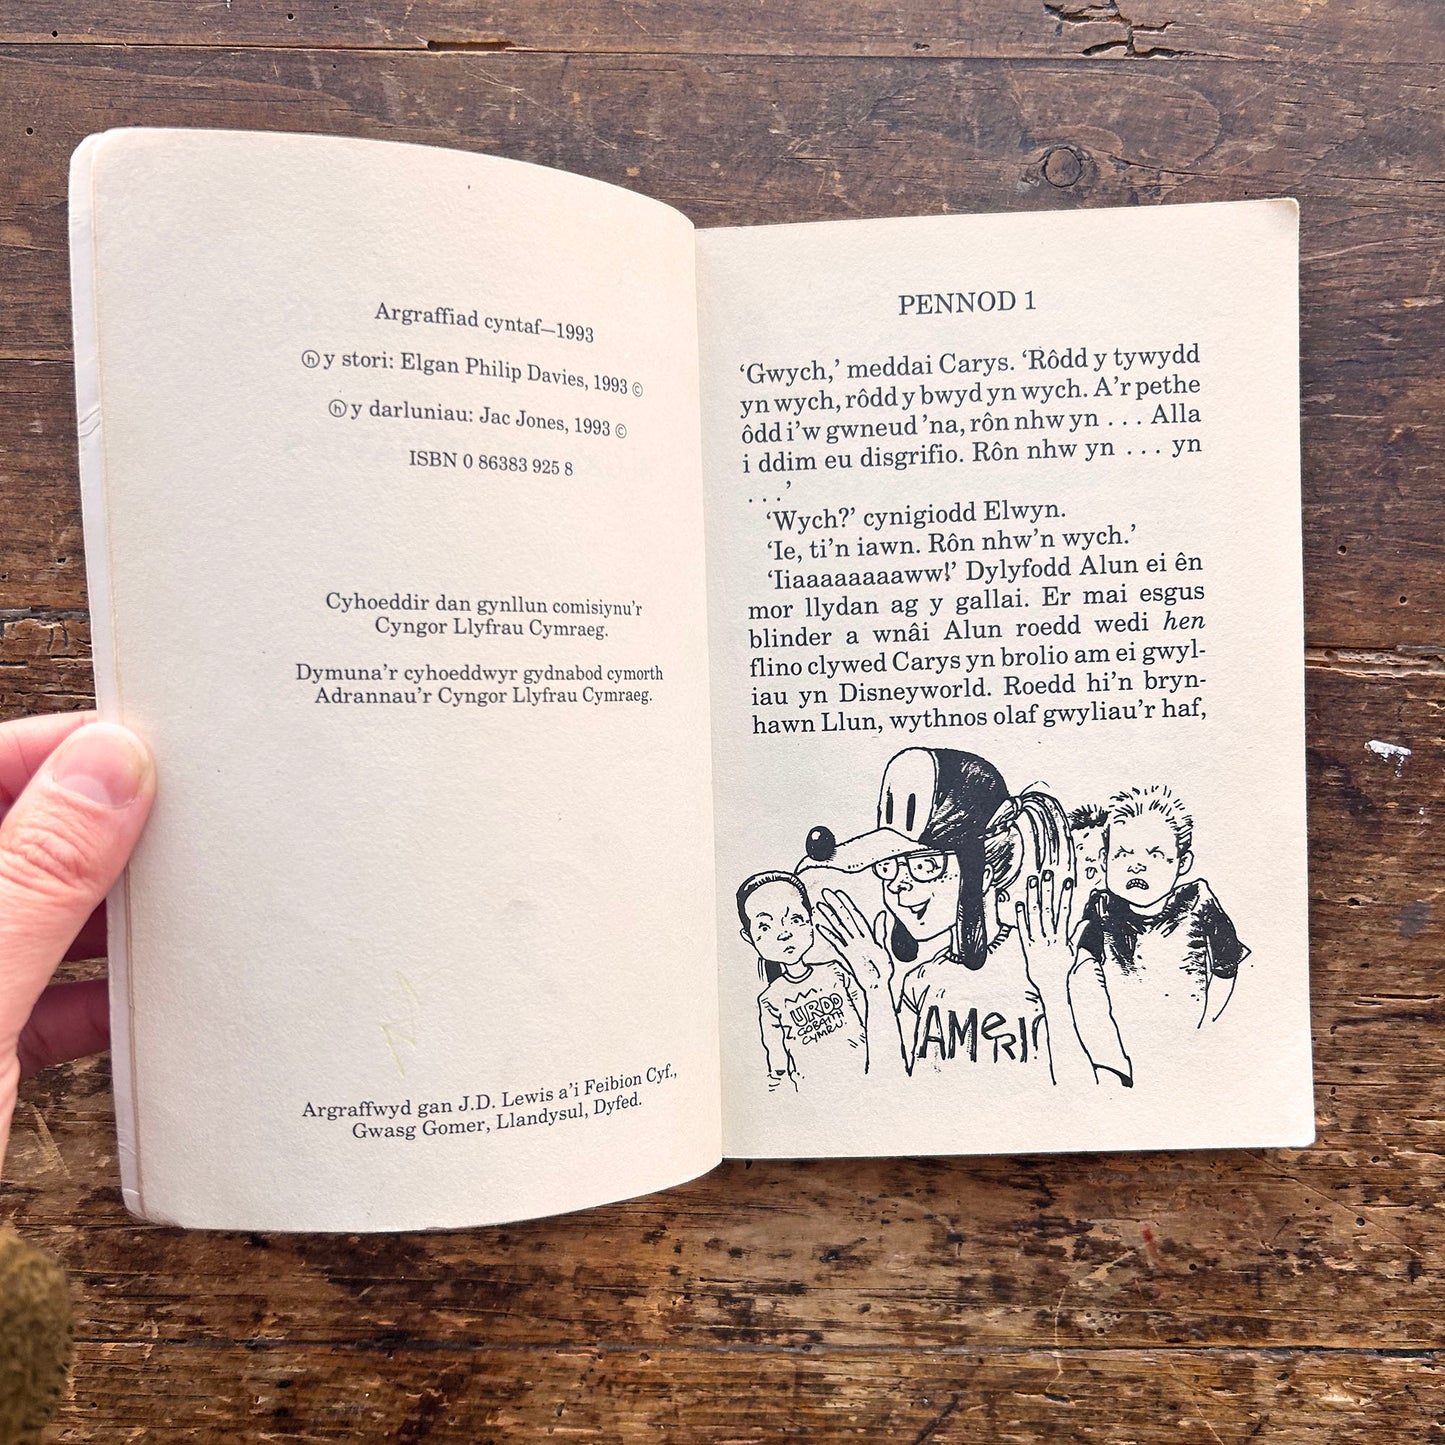 Argraffiad cyntaf—1993
ⓗ y stori: Elgan Philip Davies, 1993 ©
ⓗ y darluniau: Jac Jones, 1993 ©
ISBN 0 86383 925 8
Cyhoeddir dan gynllun comisiynu'r
Cyngor Llyfrau Cymraeg.
Dymuna'r cyhoeddwyr gydnabod cymorth
Adrannau'r Cyngor Llyfrau Cymraeg.
Argraffwyd gan J.D. Lewis a'i Feibion Cyf.,
Gwasg Gomer, Llandysul, Dyfed.
PENNOD 1
‘Gwych,’ meddai Carys. ‘Rôdd y tywydd
yn wych, rôdd y bwyd yn wych. A’r pethe
ôdd i’w gwneud ’na, rôn nhw yn . . . Alla
i ddim eu disgrifio. Rôn nhw yn . . . yn
. . .’
‘Wych?’ cynigiodd Elwyn.
‘Ie, ti’n iawn. Rôn nhw’n wych.’
‘Iiaaaaaaaaaww!’ Dylyfodd Alun ei ên
mor llydan ag y gallai. Er mai esgus
blinder a wnâi Alun roedd wedi hen
flino clywed Carys yn brolio am ei gwyl-
iau yn Disneyworld. Roedd hi’n bryn-
hawn Llun, wythnos olaf gwyliau’r haf,
URDD
GOBAITH
CYMRU.
AMERI